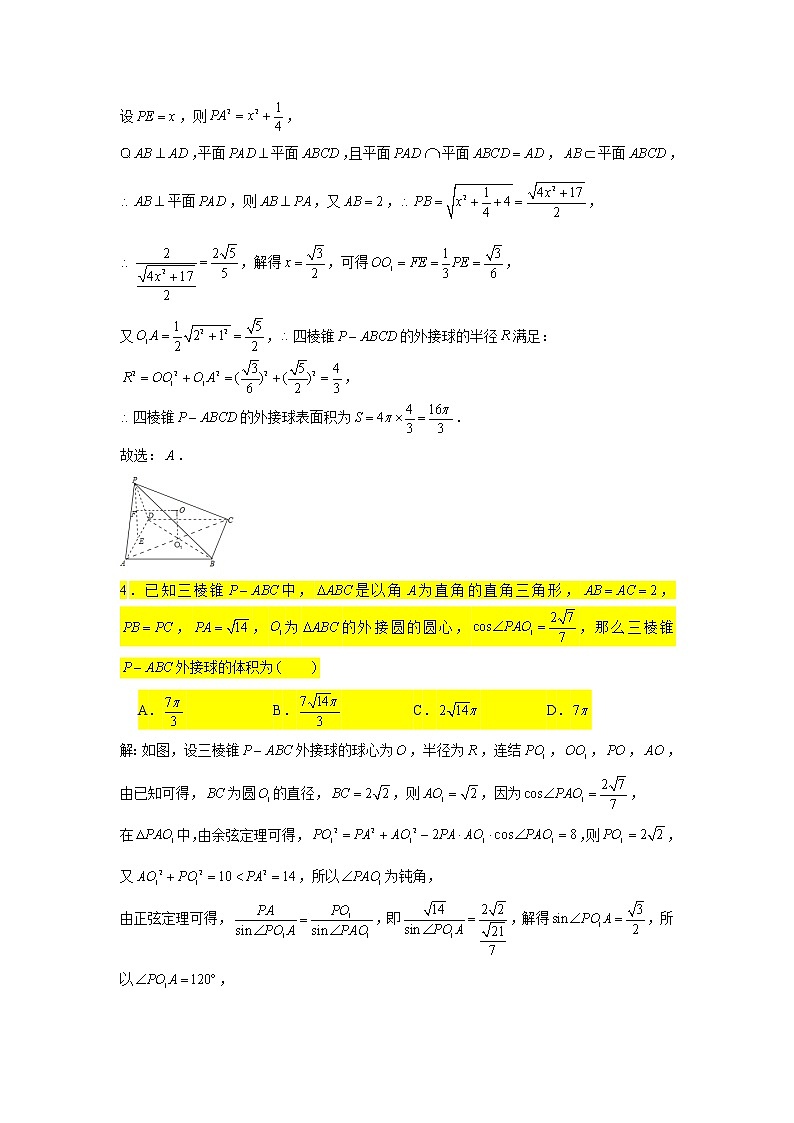 设 PE = x，则 PA² = x² + 1/4，
Q AB ⊥ AD，平面 PAD ⊥ 平面 ABCD，且平面 PAD ⌒ 平面 ABCD = AD，AB ⊂ 平面 ABCD，
∴ AB ⊥ 平面 PAD，则 AB ⊥ PA，又 AB = 2，∴ PB = √(x² + 1/4 + 4) = √(4x² + 17)/2，
∴ 2/(√(4x² + 17)/2) = 2√5/5，解得 x = √3/2，可得 OO₁ = FE = 1/3 PE = √3/6，
又 O₁A = 1/2 √(2² + 1²) = √5/2，∴ 四棱锥 P − ABCD 的外接球的半径 R 满足：
R² = OO₁² + O₁A² = (√3/6)² + (√5/2)² = 4/3，
∴ 四棱锥 P − ABCD 的外接球表面积为 S = 4π × 4/3 = 16π/3．
故选：A．
P
F D O C
E O₁
A B
4．已知三棱锥 P − ABC 中，ΔABC 是以角 A 为直角的直角三角形，AB = AC = 2，
PB = PC，PA = √14，O₁ 为 ΔABC 的外接圆的圆心，cos∠PAO₁ = 2√7/7，那么三棱锥
P − ABC 外接球的体积为（ ）
A．7π/3 B．7√14π/3 C．2√14π D．7π
解：如图，设三棱锥 P − ABC 外接球的球心为 O，半径为 R，连结 PO₁，OO₁，PO，AO，
由已知可得，BC 为圆 O₁ 的直径，BC = 2√2，则 AO₁ = √2，因为 cos∠PAO₁ = 2√7/7，
在 ΔPAO₁ 中，由余弦定理可得，PO₁² = PA² + AO₁² − 2PA · AO₁ · cos∠PAO₁ = 8，则 PO₁ = 2√2，
又 AO₁² + PO₁² = 10 < PA² = 14，所以 ∠PAO₁ 为钝角，
由正弦定理可得，PA/sin∠PO₁A = PO₁/sin∠PAO₁，即 √14/sin∠PO₁A = 2√2/(√21/7)，解得 sin∠PO₁A = √3/2，所
以 ∠PO₁A = 120°，